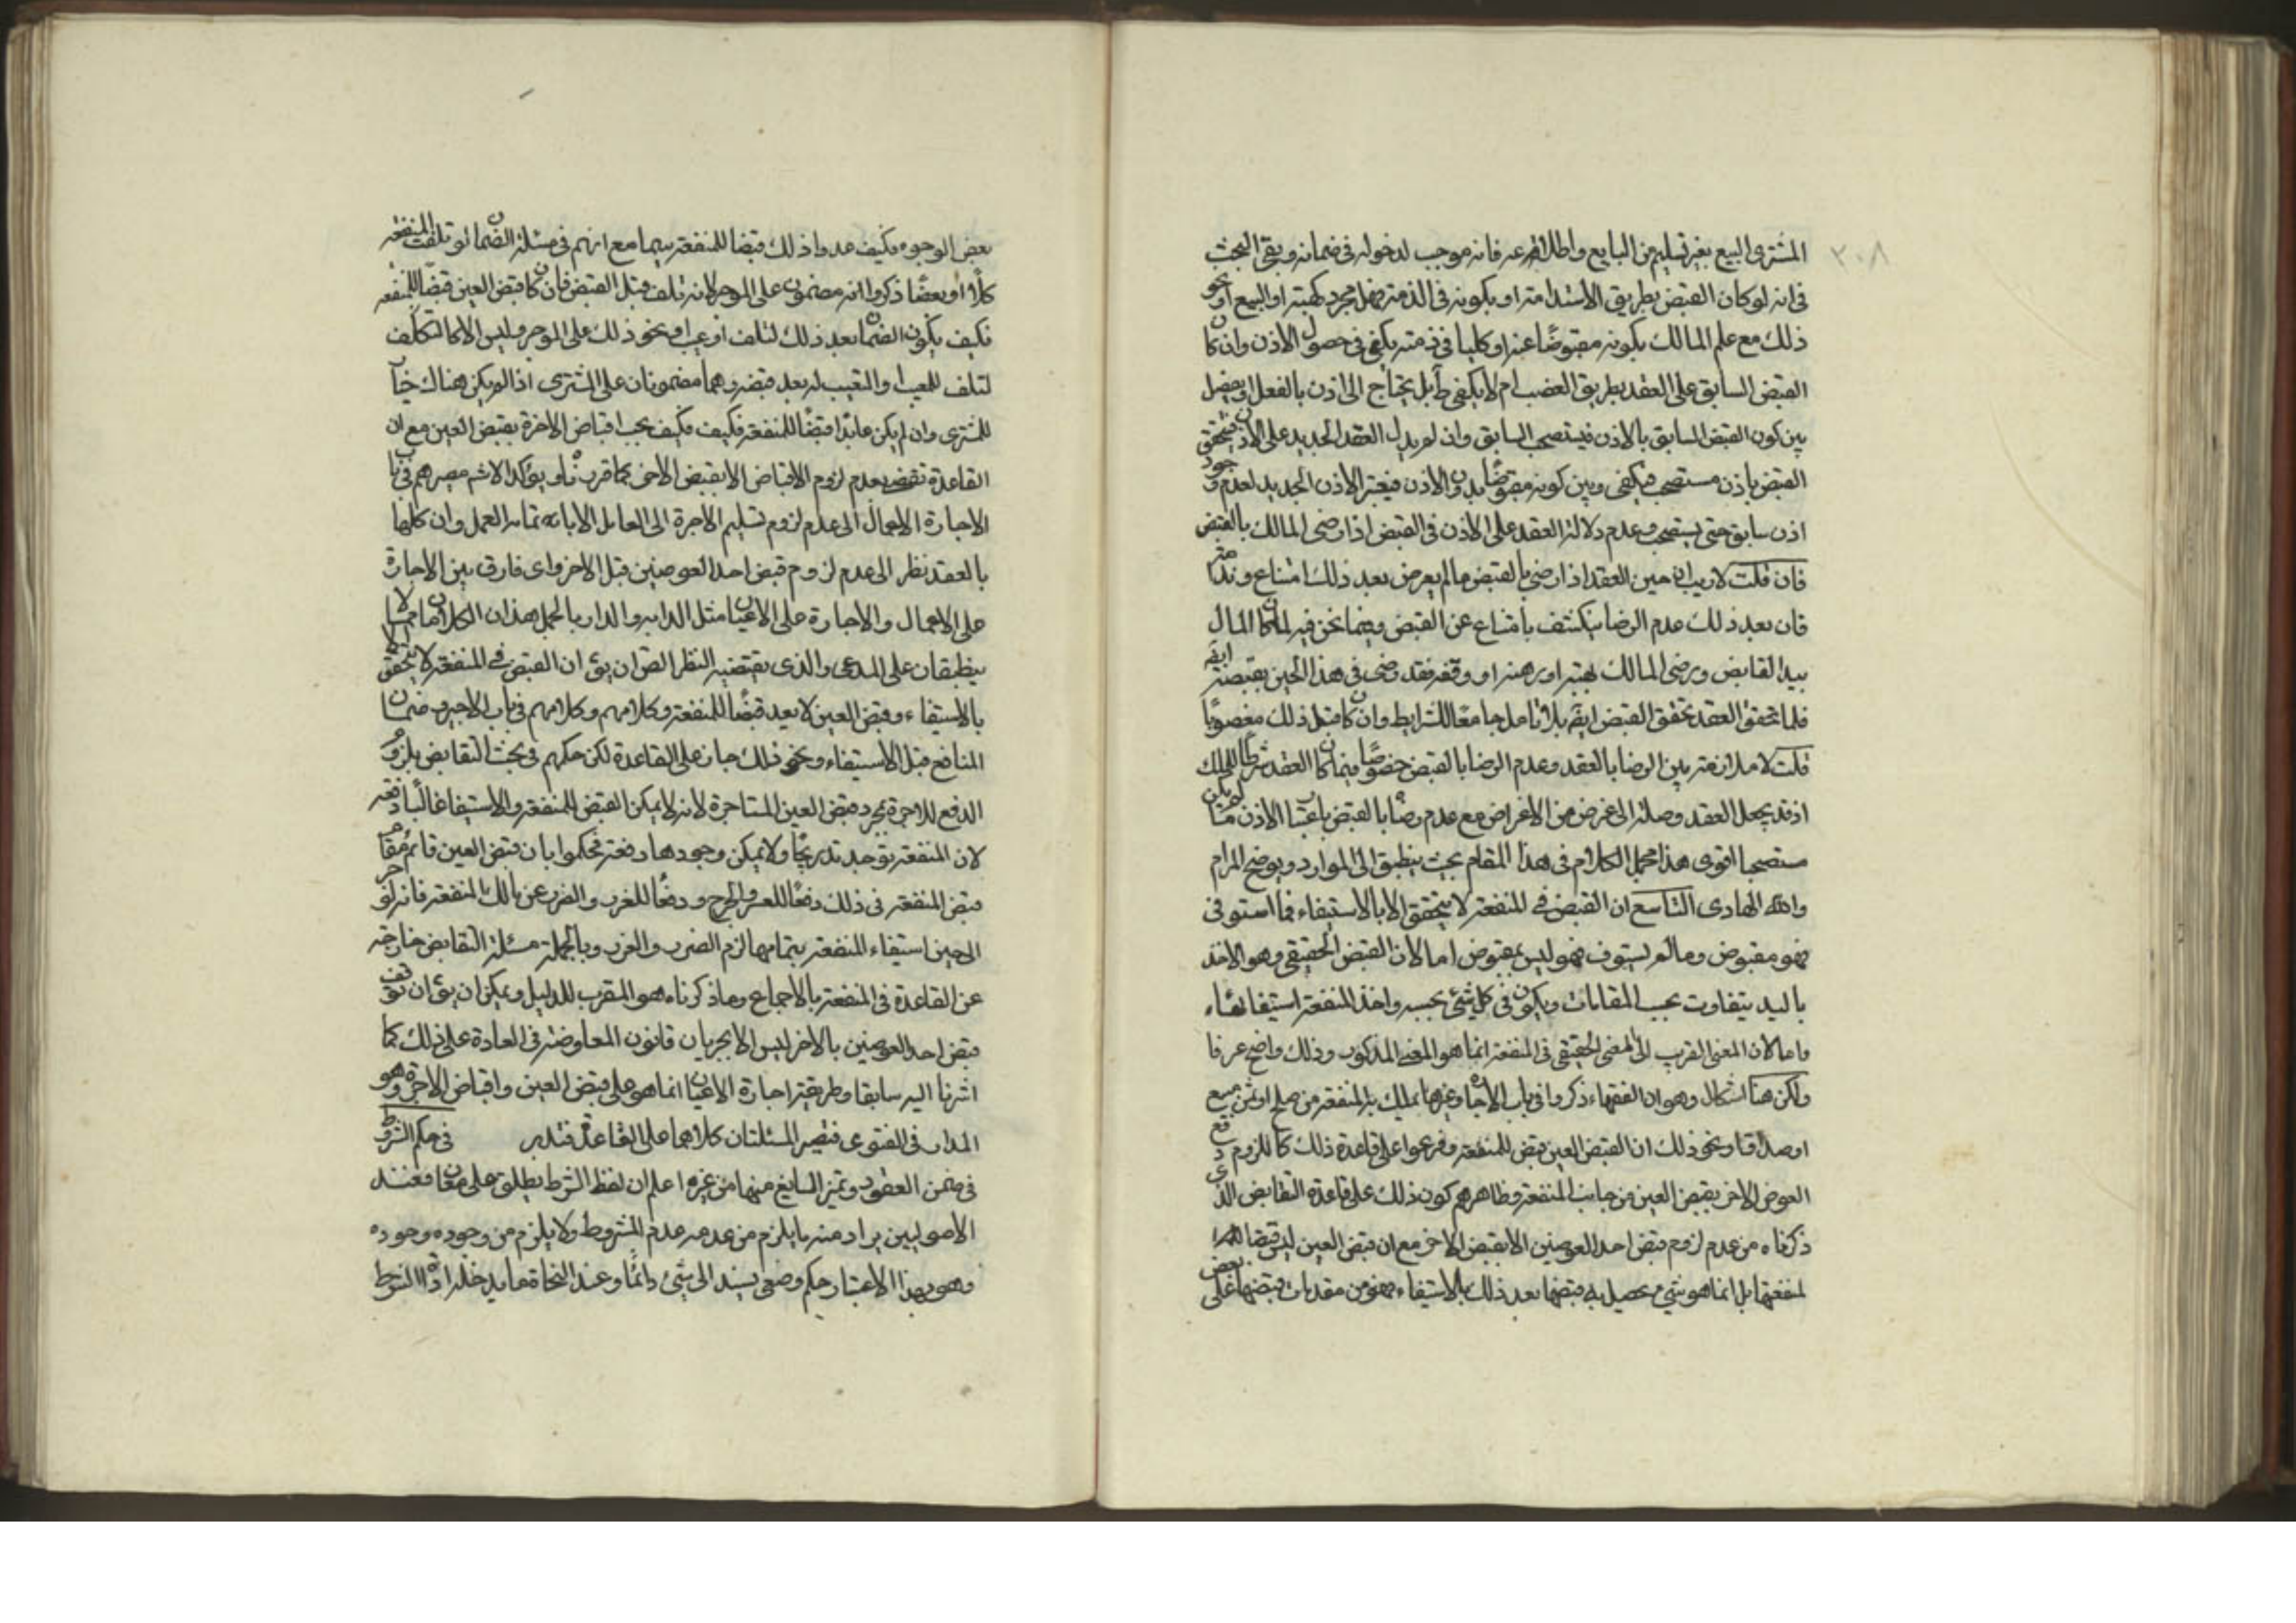 ٣٠٨
المشترى المبيع بغير تسليم من البايع واطلاقهم عنه فانه موجب لدخوله فى ضمانه وبقى البحث
فى انه لو كان القبض بطريق الاستدامة او بكونه فى الذمة فهل مجرد كهبته او البيع او نحو
ذلك مع علم المالك بكونه مقبوضًا عنده او كليا فى ذمته يكفى فى حصول الاذن وان كان
القبض السابق على العقد بطريق الغصب ام لا يكفى بل يحتاج الى اذن بالفعل او يفصل
بين كون القبض السابق بالاذن فيستصحب السابق وان لم يدل العقد الجديد على الاذن فيتحقق
القبض باذن مستصحب فيكفى وبين كونه مقبوضًا بدون الاذن فيعتبر الاذن الجديد لعدم وجود
اذن سابق حتى يستصحب وعدم دلالة العقد على الاذن فى القبض اذا رضى المالك بالقبض
فان قلت لا ريب ان حين العقد اذا رضى بالقبض ما لم يعرض بعد ذلك امتناع وندامة
فان بعد ذلك عدم الرضا ينكشف بامتناع عن القبض وفيما نحن فيه لما كان المال
بيد القابض ورضى المالك بهبته او رهنه او وقفه فقد رضى فى هذا الحين بقبضه ايضا
فلما تحقق العقد تحقق القبض ايضا بلا تامل جامعًا للشرايط وان كان قبل ذلك مغصوبًا
قلت لا ملازمة بين الرضا بالعقد وعدم الرضا بالقبض خصوصًا فيما كان العقد شرطًا للملك
اذ قد يجعل العقد وصلة الى غرض من الاغراض مع عدم رضا بالقبض باعتبار الاذن ما لم يكن
مستصحبا اقوى هذا مجمل الكلام فى هذا المقام بحيث ينطبق الى الموارد ويوضح المرام
والله الهادى التاسع ان القبض فى المنفعة لا يتحقق الا بالاستيفاء فما استوفى
فهو مقبوض وما لم يستوف فهو ليس بمقبوض اما لان القبض الحقيقى وهو الاخذ
باليد يتفاوت بحسب المقامات ويكون فى كل شئ بحسبه واخذ المنفعة استيفائها
واما لان المعنى القريب الى المعنى الحقيقى فى المنفعة انما هو المعنى المذكور وذلك واضح عرفا
ولكن هنا اشكال وهو ان الفقهاء ذكروا فى باب الاجارة وغيرها مما يملك به المنفعة من صلح او ثمن مبيع
او صداق او نحو ذلك ان القبض العين قبض للمنفعة وفرعوا على قاعدة ذلك كالزوم دفع
العوض الاخر بقبض العين من جانب المنفعة وظاهرهم كون ذلك على قاعدة التقابض الذى
ذكرناه من عدم لزوم قبض احد العوضين الا بقبض الاخر مع ان قبض العين ليس قبضا
لمنفعتها بل انما هو شئ يحصل به قبضها بعد ذلك بالاستيفاء فهو من مقدمات قبضها على بعض
بعض الوجوه فكيف عدوا ذلك قبضا للمنفعة سيما مع انهم فى مسئلة الضمان لو تلفت المنفعة
كلًا او بعضًا ذكروا انه مضمون على الموجر لانه تلف قبل القبض فان كان قبض العين قبضًا للمنفعة
فكيف يكون الضمان بعد ذلك لتلف او عيب او نحو ذلك على الموجر وليس الا كالتكلف
لتلف المبيع او التعيب له بعد قبضه وهما مضمونان على المشترى اذا لم يكن هناك خيار
للمشترى وان لم يكن عابدًا قبضًا للمنفعة فكيف فكيف يجب اقباض الاجرة بقبض العين مع ان
القاعدة تقضى بعدم لزوم الاقباض الا بقبض الاخر كما قررناه ويؤكد الاشكال مصيرهم فى باب
الاجارة الاعمال الى عدم لزوم تسليم الاجرة الى العامل الا باتمام العمل وان كلها
بالعقد نظرا الى عدم لزوم قبض احد العوضين قبل الاخر واى فارق بين الاجارة
على الاعمال والاجارة على الاعيان مثل الدابة والدار بالجملة هذان الكلامان مما لا
ينطبقان على المدعى والذى يقتضيه النظر القاصر ان يق ان القبض فى المنفعة لا يتحقق الا
بالاستيفاء وقبض العين لا يعد قبضًا للمنفعة وكلامهم وكلامهم فى باب الاجير وضمان
المنافع قبل الاستيفاء ونحو ذلك جار على القاعدة لكن حكمهم فى بحث التقابض بلزوم
الدفع للاجرة بمجرد قبض العين المستاجرة لانه لا يمكن القبض للمنفعة والاستيفا غالبًا دفعة
لان المنفعة توجد تدريجًا ولا يمكن وجودها دفعة فحكموا بان قبض العين قائم مقام
قبض المنفعة فى ذلك دفعًا للعسر والحرج ودفعًا للغرر والضرر عن مالك المنفعة فانه لو اخر
الى حين استيفاء المنفعة بتمامها لزم الضرر والغرر وبالجملة مسئلة التقابض خارجة
عن القاعدة فى المنفعة بالاجماع وما ذكرناه هو المقرب للدليل ويمكن ان يق ان توقف
قبض احد العوضين بالاخر ليس الا لجريان قانون المعاوضة فى العادة على ذلك كما
اشرنا اليه سابقا وطريقة اجارة الاعيان انما هو على قبض العين واقباض الاجرة وهو
المدار فى الفتوى فتصير المسئلتان كلاهما على القاعدة فتدبر فى حكم الشروط
فى ضمن العقود وتميز السايغ منها من غيره اعلم ان لفظ الشرط يطلق على معان فعند
الاصوليين يراد منه ما يلزم من عدمه عدم المشروط ولا يلزم من وجوده وجوده
وهو بهذا الاعتبار حكم وضعى يسند الى شئ دائمًا وعند النحاة ما يدخله اداة الشرط